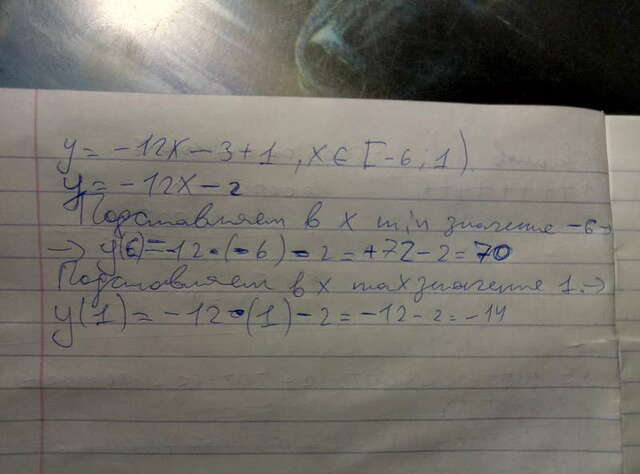 y = -12x - 3 + 1 , x ∈ [-6 ; 1)
y = -12x - 2
Подставляем в x min значение -6 →
→ y(6) = -12 · (-6) - 2 = +72 - 2 = 70
Подставляем в x max значение 1. →
y(1) = -12 · (1) - 2 = -12 - 2 = -14